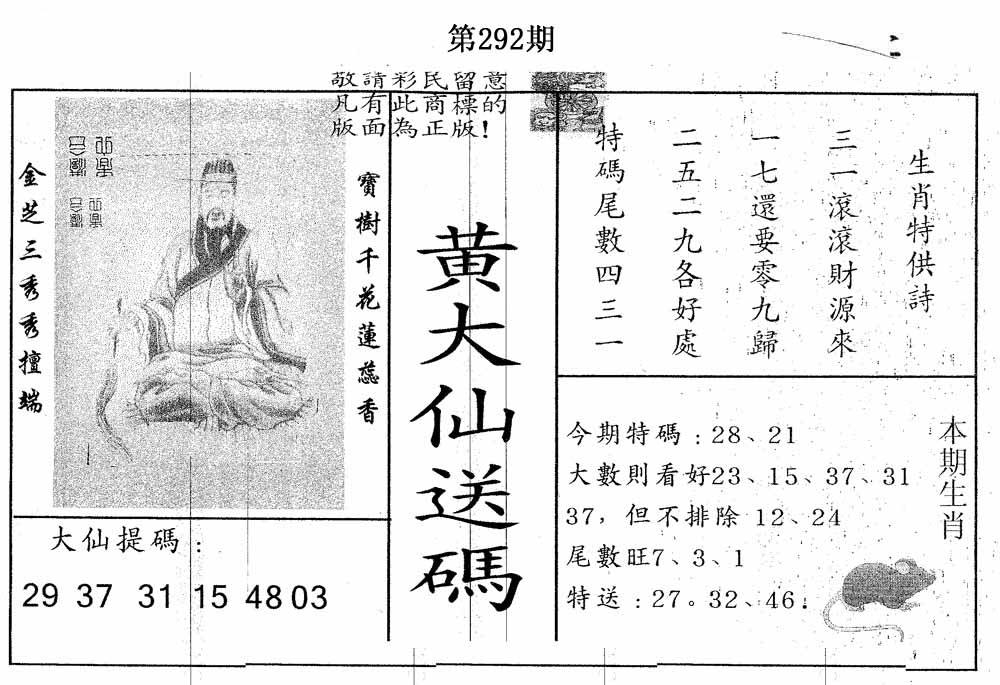 第292期
敬請彩民留意
凡有此商標的
版面為正版!
金芝三秀秀擅端
寶樹千花蓮蕊香
黃大仙送碼
生肖特供詩
三一滾滾財源來
一七還要零九歸
二五二九各好處
特碼尾數四三一
大仙提碼：
29 37 31 15 48 03
今期特碼：28、21
大數則看好23、15、37、31
37，但不排除 12、24
尾數旺7、3、1
特送：27。32、46.
本期生肖